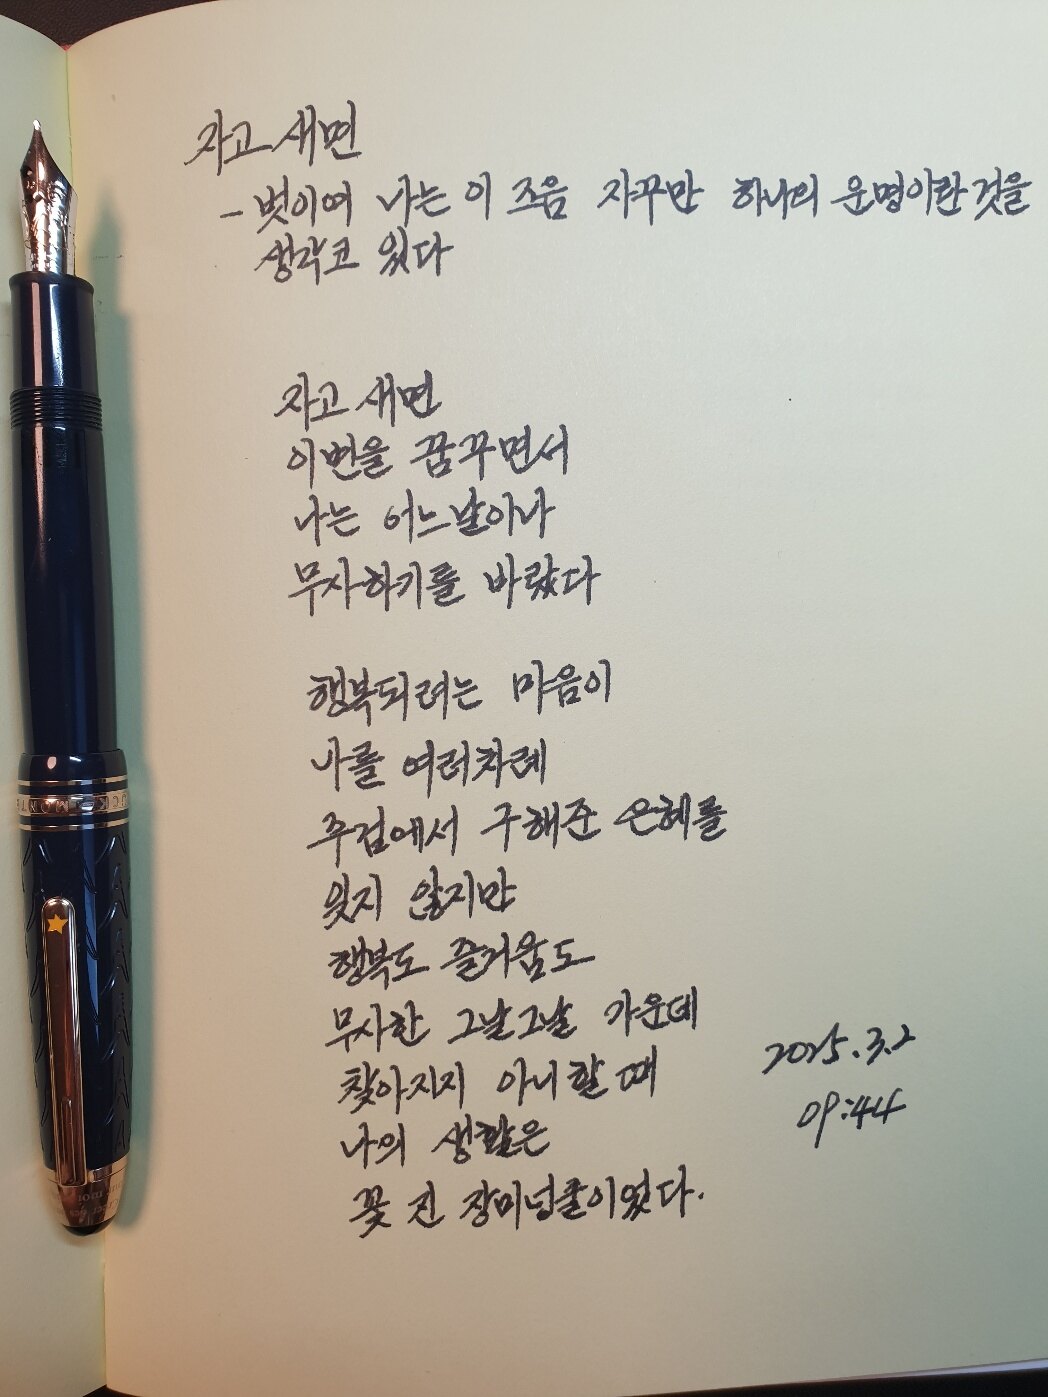 자고 새면
- 벗이여 나는 이 즈음 자꾸만 하나의 운명이란 것을
생각코 있다
자고 새면
이변을 꿈꾸면서
나는 어느날이나
무사하기를 바랐다
행복되려는 마음이
나를 여러차례
주검에서 구해준 은혜를
잊지 않지만
행복도 즐거움도
무사한 그날그날 가운데
찾아지지 아니할 때
나의 생활은
꽃 진 장미넝쿨이었다.
2025.3.2
09:44